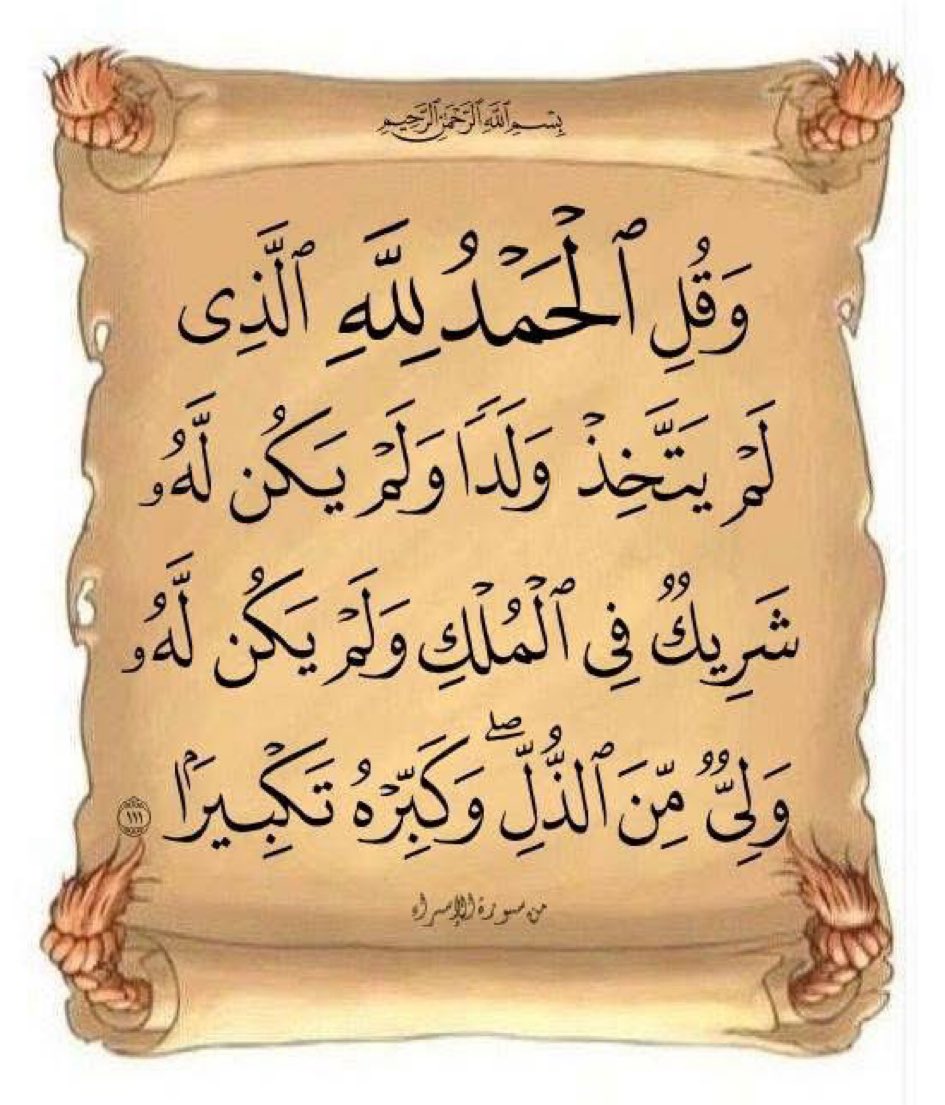 بِسْمِ ٱللَّهِ ٱلرَّحْمَٰنِ ٱلرَّحِيمِ
وَقُلِ ٱلْحَمْدُ لِلَّهِ ٱلَّذِى
لَمْ يَتَّخِذْ وَلَدًا وَلَمْ يَكُن لَّهُۥ
شَرِيكٌ فِى ٱلْمُلْكِ وَلَمْ يَكُن لَّهُۥ
وَلِىٌّ مِّنَ ٱلذُّلِّ ۖ وَكَبِّرْهُ تَكْبِيرًۢا ١١١
من سورة الإسراء